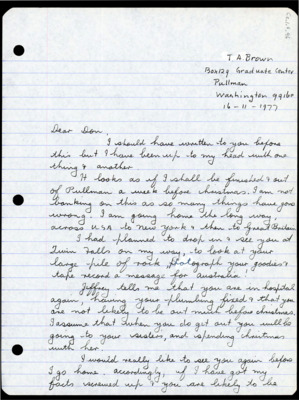 T A Brown
Box 129 Graduate Centre
Pullman
Washington 99163
16-11-1977
Dear Don,
I should have written to you before
this but I have been up to my head with one
thing & another.
It looks as if I shall be finished & out
of Pullman a week before christmas. I am not
banking on this as so many things have gone
wrong. I am going home the long way,
across U.S.A to New York & then to Great Britain
I had planned to drop in & see you at
Twin Falls on my way, to look at your
large pile of rock, photograph your goodies &
tape record a message for Australia.
Jeffrey tells me that you are in hospital
again, having your plumbing fixed & that you
are not likely to be out much before christmas.
I assume that when you do get out you will be
going to your sisters, and spending christmas
with her.
I would really like to see you again before
I go home. accordingly, if I have got my
facts screwed up & you are likely to be